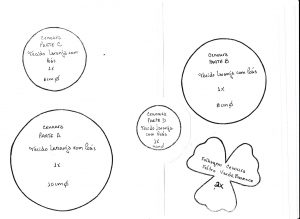 Cenoura
Parte C
Tecido Laranja com
Poás
1x
6cmØ
Cenoura
Parte B
Tecido Laranja com Poás
1x
8cmØ
Cenoura
Parte D
Tecido Laranja
com Poás
1x
Cenoura
Parte A
Tecido Laranja com Poás
1x
10cmØ
Folhagem Cenoura
Feltro Verde
2x